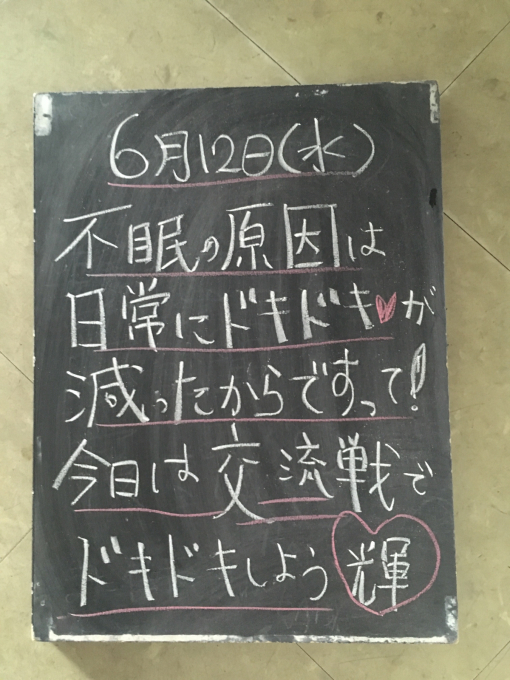 6月12日(水)
不眠の原因は
日常にドキドキ♥が
減ったからですって!
今日は交流戦で
ドキドキしよう 輝